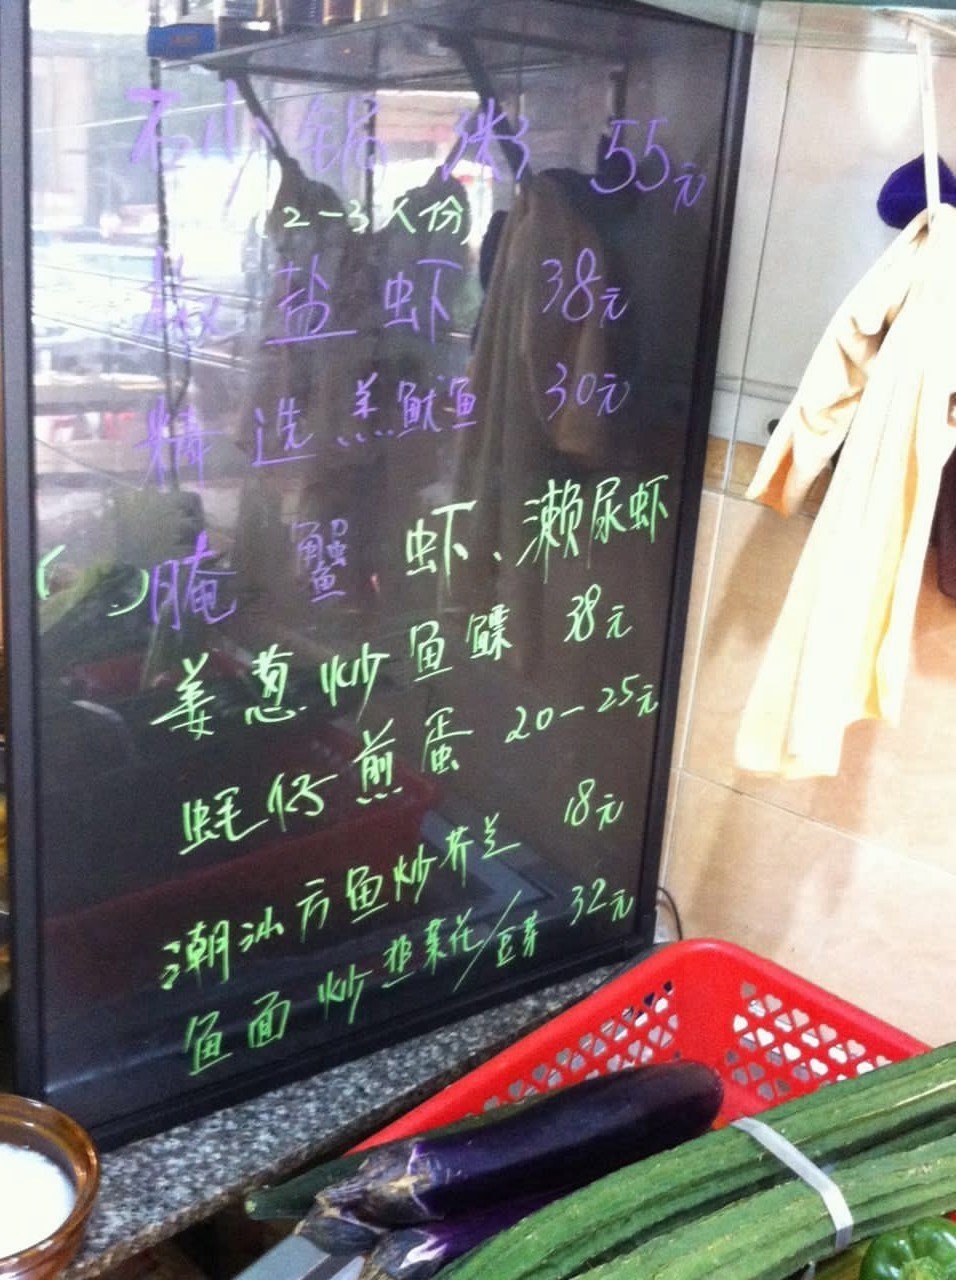 石小锅粥 55元
(2-3人份)
椒盐虾 38元
精选羔鱿鱼 30元
腌蟹、虾、濑尿虾
姜葱炒鱼鳔 38元
蚝仔煎蛋 20-25元
潮汕方鱼炒芥兰 18元
鱼面炒韭菜花/豆芽 32元